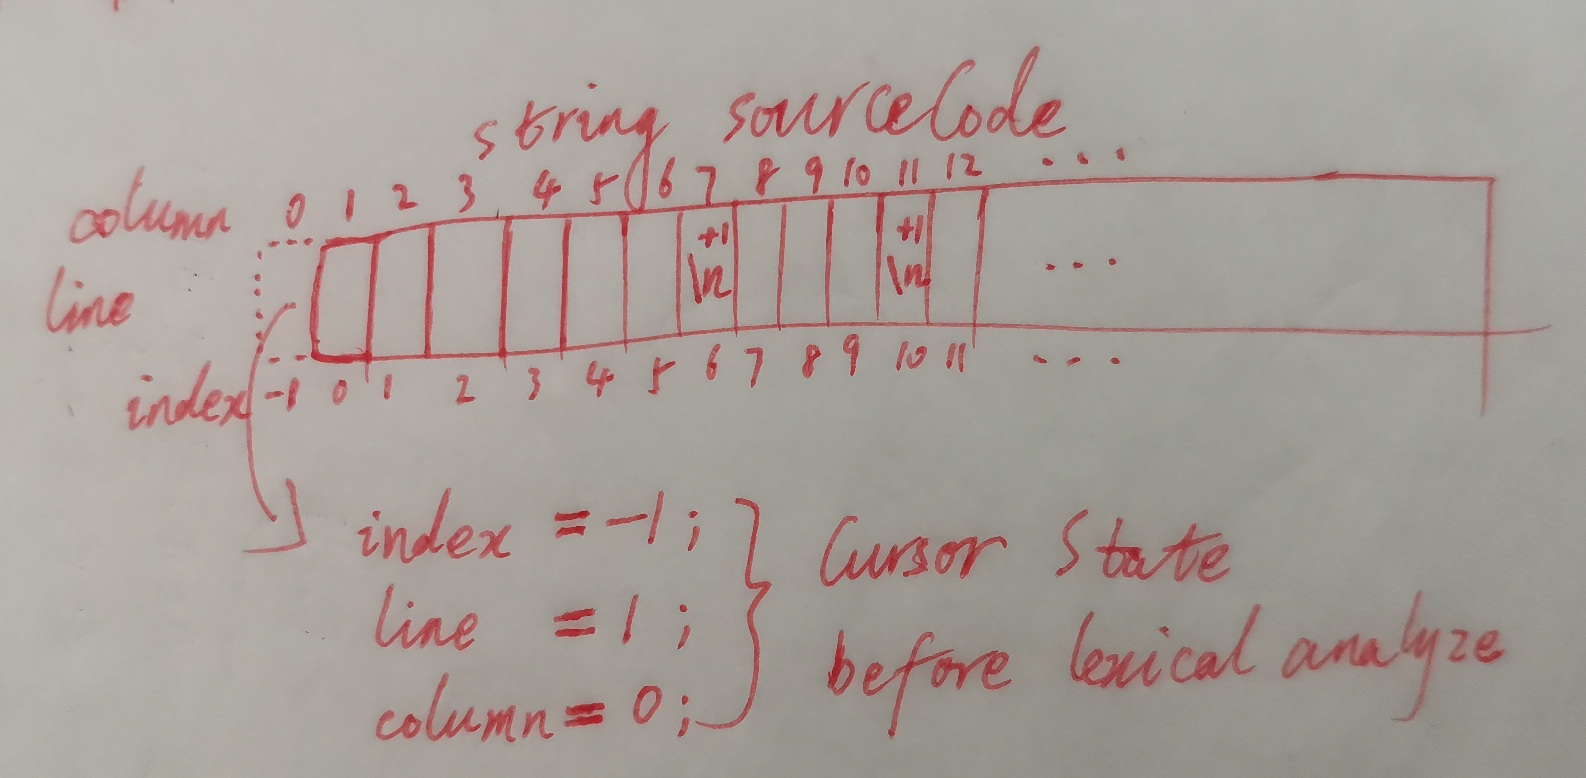 string sourceCode
column 0 1 2 3 4 5 6 7 8 9 10 11 12 ...
line +1 +1
\n \n ...
index -1 0 1 2 3 4 5 6 7 8 9 10 11 ...
index = -1;
line = 1;
column = 0;
Cursor State
before lexical analyze